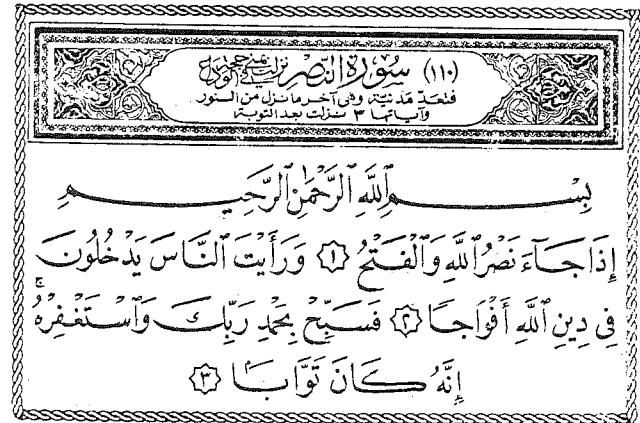 (١١٠) سُورَةُ النَّصْرِ نزلت بمنى في حجة الوداع
فتعد مدنية وهى آخر ما نزل من السور
وآياتها ٣ نزلت بعد التوبة
بِسْمِ ٱللَّهِ ٱلرَّحْمَٰنِ ٱلرَّحِيمِ
إِذَا جَآءَ نَصْرُ ٱللَّهِ وَٱلْفَتْحُ ١ وَرَأَيْتَ ٱلنَّاسَ يَدْخُلُونَ
فِى دِينِ ٱللَّهِ أَفْوَاجًا ٢ فَسَبِّحْ بِحَمْدِ رَبِّكَ وَٱسْتَغْفِرْهُۚ
إِنَّهُۥ كَانَ تَوَّابَۢا ٣